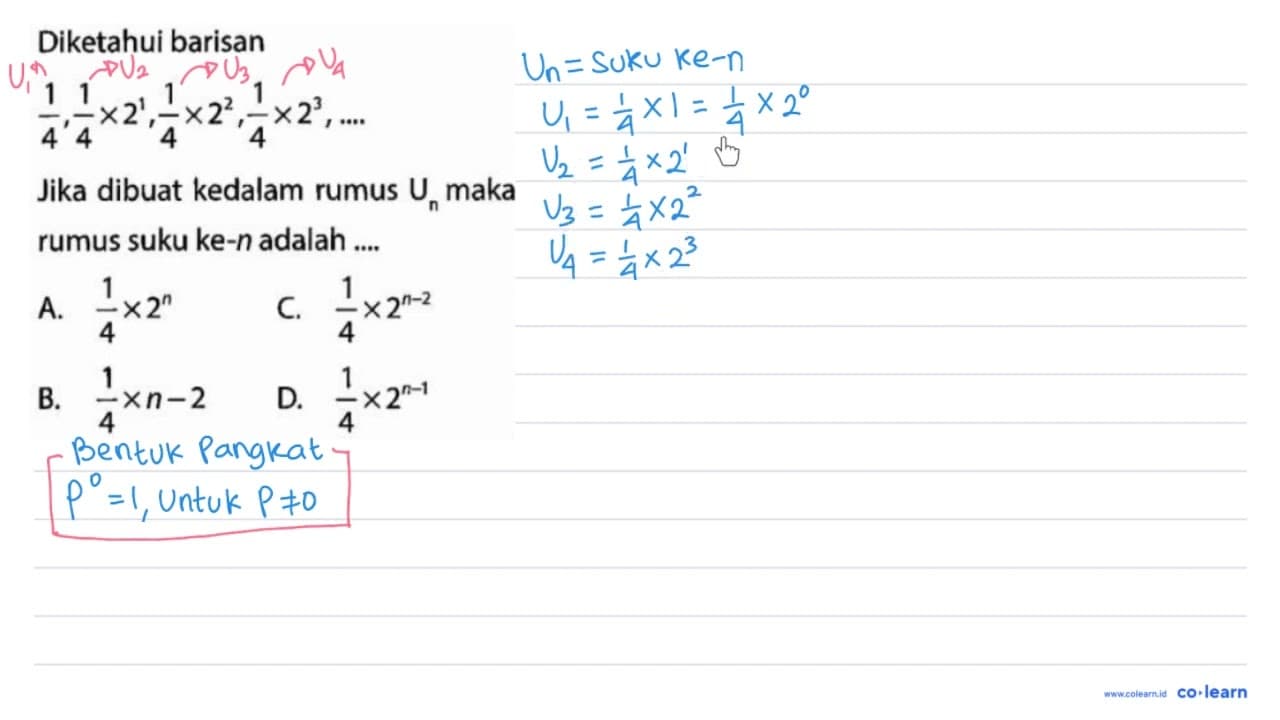 Diketahui barisan
U₁ U₂ U₃ U₄
1/4, 1/4 × 2¹, 1/4 × 2², 1/4 × 2³, ....
Jika dibuat kedalam rumus Uₙ maka
rumus suku ke-n adalah ....
A. 1/4 × 2ⁿ C. 1/4 × 2ⁿ⁻²
B. 1/4 × n – 2 D. 1/4 × 2ⁿ⁻¹
Bentuk Pangkat
P⁰ = 1, untuk P ≠ 0
Uₙ = Suku ke-n
U₁ = 1/4 × 1 = 1/4 × 2⁰
U₂ = 1/4 × 2¹
U₃ = 1/4 × 2²
U₄ = 1/4 × 2³
www.colearn.id co·learn